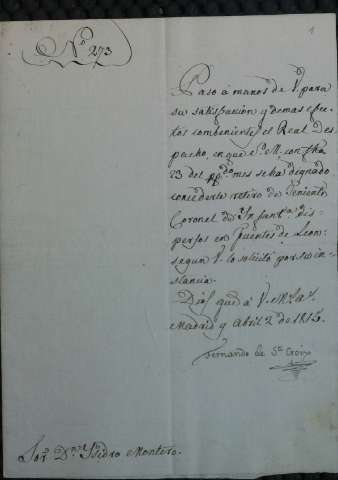 Nº 273
1
Paso á manos de V. para
su satisfaccion y demas efec-
tos combenientes el Real Des-
pacho, en que S. M. con fha
23 del ppdo mes se ha dignado
concederle retiro de Teniente
Coronel de Infantª dis-
persos en Fuentes de Leon,
segun V. lo solicitó por su in-
stancia.
Dios gue á V. ms as
Madrid y Abril 2 de 1815.
Fernando de Sta Croix
Sor Dn Isidro Montero.